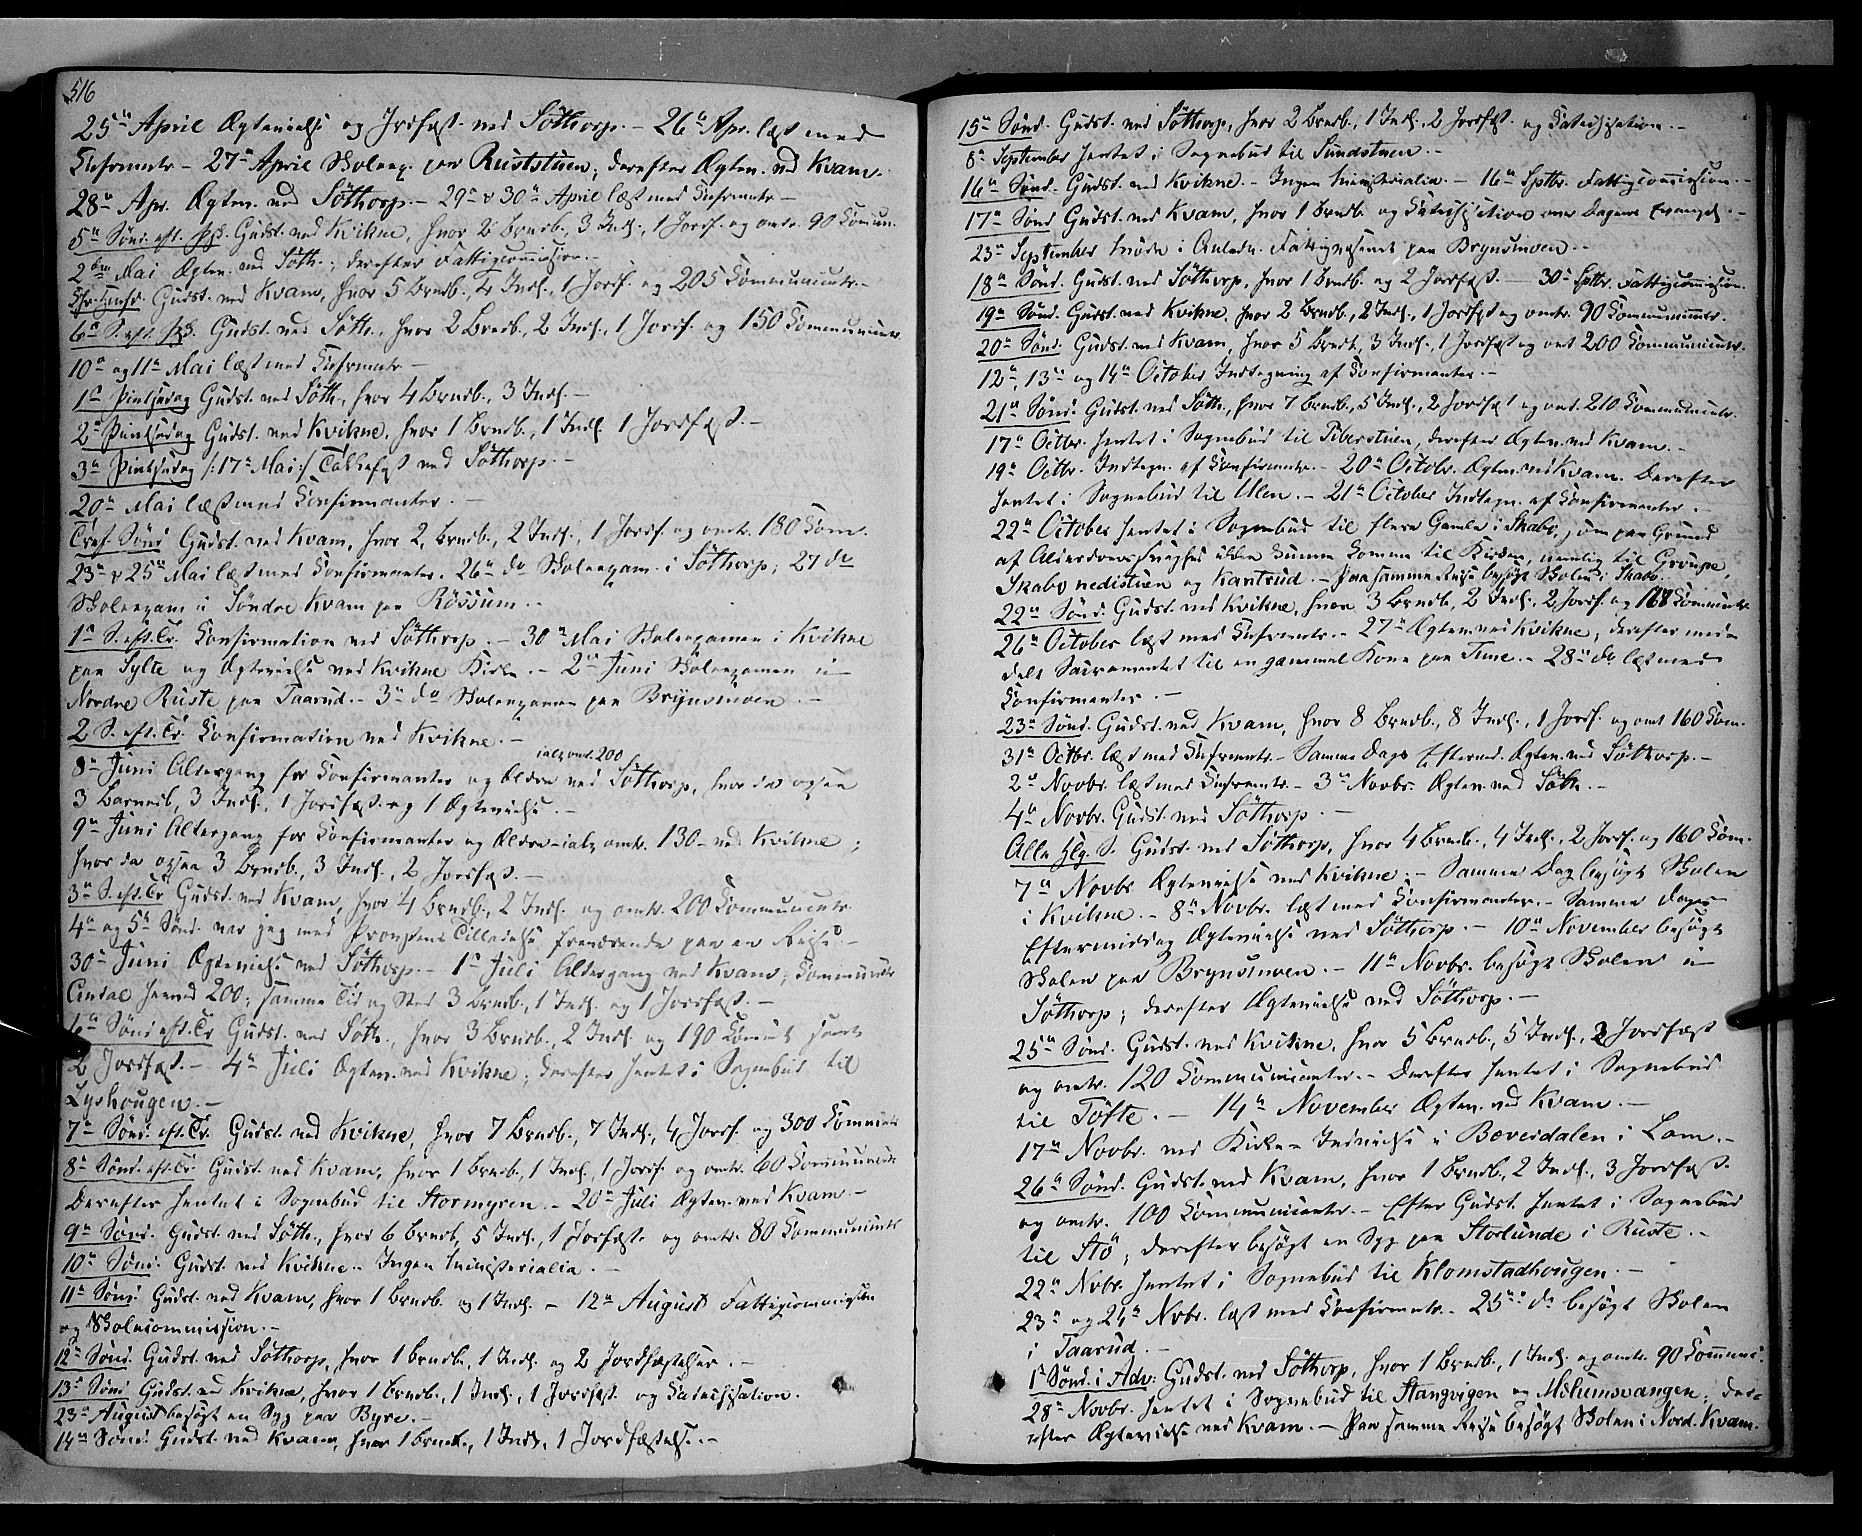 516
25de April Ægtevielse og Jrdfæst. ved Söttorp. – 26de Apr. læst med
Cnfrmntr – 27de April Skoleex. paa Ruststuen, derefter Ægtev. ved Kvam.
28de Apr. Ægtev. ved Söttorp. – 29de & 30de April læst med Cnfrmntr –
5te Sønd. eft. Psk. Gudst. ved Kvikne, hvor 2 Brndb., 3 Indl., 1 Jordf. og omtr. 90 Commun.
2den Mai Ægtev. ved Sötth.; derefter Fattigcommission. –
Chr. Hmfrt. Gudst. ved Kvam, hvor 5 Brndb., 2 Indl., 1 Jordf. og 205 Communicntr. –
6te S. eft. Psk. Gudst. ved Sötth., hvor 2 Brndb., 2 Indl., 1 Jordf. og 150 Communicntr.
10de og 11te Mai læst med Cnfrmntr –
1ste Pintsedag Gudst. ved Sötth., hvor 4 Brndb., 3 Indl. –
2den Pintsedag Gudst. ved Kvikne, hvor 1 Brndb., 1 Indl. 1 Jordfæst. –
3die Pintsedag /:17de Mai:/ Takkefest ved Söttorp. –
20de Mai læst med Confirmanter. –
Tref. Sønd. Gudst. ved Kvam, hvor 2 Brndb., 2 Indl., 1 Jordf. og omtr. 180 Com.
23de & 25de Mai læst med Confirmanter. 26de do Skoleexam. i Söttorp; 27 do
Skoleexam i Søndre Kvam paa Rössum. –
1ste S. eft. Tr. Confirmation ved Söttorp. – 30de Mai Skoleexamen i Kvikne
paa Sylte og Ægtevielse ved Kvikne Kirke. – 2den Juni Skoleexamen i
Nordre Ruste paa Taarud. – 3die do Skoleexamen paa Brynsmoen. –
2 S. eft. Tr. Confirmation ved Kvikne. –
ialt omt. 200
8de Juni Altergang for Confirmanter og Ældre ved Söttorp, hvor da ogsaa
3 Barnedb, 3 Indl., 1 Jordfæst. og 1 Ægtevielse. –
9de Juni Altergang for Confirmanter og Ældre – ialt omtr. 130 – ved Kvikne;
hvor da ogsaa 3 Brndb., 3 Indl., 2 Jordfæst. –
3die S. eft. Tr. Gudst. ved Kvam, hvor 4 Brndb., 2 Indl. og omtr. 200 Communicntr.
4de og 5te Sønd. var jeg med Provstens Tilladelse fraværende paa en Reise. –
30de Juni Ægtevielse ved Söttorp. – 1ste Juli Altergang ved Kvam; Communicntr
Antal herved 200; samme Tid og Sted 3 Brndb., 1 Indl. og 1 Jordfæst. –
6te Sønd. eft. Tr. Gudst. ved Sötth., hvor 3 Brndb., 2 Indl. og 190 Comunt. samt
2 Jordfæst. – 4de Juli Ægtev. ved Kvikne; derefter hentet i Sognebud til
Lyshougen. –
7de Sønd. eft. Tr. Gudst. ved Kvikne, hvor 7 Brndb., 7 Indl., 4 Jordf. og 300 Communcntr
8de Sønd. eft. Tr. Gudst. ved Kvam, hvor 1 Brndb., 1 Indl., 1 Jordf. og omtr. 60 Communicntr
Derefter hentet i Sognebud til Stormyren. – 20de Juli Ægtev. ved Kvam –
9de Sønd. Gudst. ved Sötth., hvor 6 Brndb, 5 Indl., 1 Jordfæst. og omtr. 80 Communicntr
10de Sønd. Gudst. ved Kvikne – Ingen Ministerialia. –
11te Sønd. Gudst. ved Kvam, hvor 1 Brndb. og 1 Indl. – 12te August Fattigcommission
og Skolecommission. –
12te Sønd. Gudst. ved Söttorp, hvor 1 Brndb., 1 Indl. og 2 Jordfæstelser. –
13de Sønd. Gudst. ved Kvikne, hvor 1 Brndb., 1 Indl., 1 Jordfæst. og Katechisation.
23de August besøgt en Syg paa Byre. –
14de Sønd. Gudst. ved Kvam, hvor 1 Brndb., 1 Indl., 1 Jordfæstelse. –
15de Sønd. Gudst. ved Söttorp, hvor 2 Brndb., 1 Indl., 2 Jordfæst. og Katechisation. –
8de September hentet i Sognebud til Sundstuen. –
16de Sønd. Gudst. ved Kvikne. – Ingen Ministerialia. – 16de Sptbr. Fattigcommission. –
17de Sønd. Gudst. ved Kvam, hvor 1 Brndb. og Katechisation over Dagens Evangel. –
23de September Møde i Anledn. Fattigvæsenet paa Brynsmoen. –
18de Sønd. Gudst. ved Söttorp, hvor 1 Brndb. og 2 Jordfæst. – 30te Sptbr. Fattigcommission.
19de Sønd. Gudst. ved Kvikne, hvor 2 Brndb., 2 Indl., 1 Jordfæst og omtr. 90 Communicntr.
20de Sønd. Gudst. ved Kvam, hvor 5 Brndb., 3 Indl., 1 Jordfæst og omt 200 Communicntr.
12te, 13de og 14de October Indtegning af Confirmanter. –
21de Sønd. Gudst. ved Sötth., hvor 7 Brndb., 5 Indl., 2 Jordfæst og omt. 210 Communicntr.
17de Octbr. hentet i Sognebud til Piberstuen, derefter Ægtev. ved Kvam. –
19de Octbr. Indtegn. af Confirmntr. – 20de Octobr. Ægtev. ved Kvam. Derefter
hentet i Sognebud til Ulen. – 21de October Indtegn. af Confirmanter. –
22de October hentet i Sognebud til flere Gamle i Skabo, som paa Grund
af Alderdomssvaghed ikke kunne komme til Kirken, nemlig til Graupe,
Skabo nedistuen og Kantrud. – Paa samme Reise besøgt Skolen i Skabo.
22de Sønd. Gudst. ved Kvikne, hvor 3 Brndb., 2 Indl., 2 Jordf. og 168 Communcntr.
26de October læst med Cnfrmntr. – 27de Ægtev. ved Kvikne, derefter med-
delt Sacramentet til en gammel Kone paa Tune. – 28de do læst med
Confirmanter. –
23de Sønd. Gudst. ved Kvam, hvor 8 Brndb., 8 Indl., 1 Jordf. og omt 160 Com.
31te Octbr. læst med Cnfrmntr. – Samme Dags Eftermd. Ægtev. ved Söttorp. –
2den Novbr. læst med Cnfrmntr. – 3die Novbr. Ægtev. ved Sötth. –
4de Novbr. Gudst. ved Söttorp. –
Alle Hlg. S. Gudst. ved Söttorp, hvor 4 Brndb., 4 Indl., 2 Jordf. og 160 Com.
7de Novbr Ægtevielse ved Kvikne. – Samme Dag besøgt Skolen
i Kvikne. – 8de Novbr. læst med Confirmanter. – Samme Dags
Eftermiddag Ægtevielse ved Söttorp. – 10de November besøgt
Skolen paa Brynsmoen. – 11te Novbr. besøgt Skolen i
Söttorp; derefter Ægtevielse ved Söttorp. –
25de Sønd. Gudst. ved Kvikne, hvor 5 Brndb., 5 Indl., 2 Jordfæst
og omtr. 120 Communicanter. – Derefter hentet i Sognebud
til Töfte. – 14de November Ægtev. ved Kvam. –
17de Novbr. ved Kirke-Indvielse i Bæverdalen i Lom. –
26de Sønd. Gudst. ved Kvam, hvor 1 Brndb., 2 Indl., 3 Jordfæst.
og omtr. 100 Communicantr. – Efter Gudst. hentet i Sognebud
til Stö; derefter besøgt en Syg paa Storlunde i Ruste. –
22de Novbr. hentet i Sognebud til Klomstadhougen. –
23de og 24de Nvbr. læst med Confirmntr. – 25de do besøgt Skolen
i Taarud. –
1ste Sønd. i Adv. Gudst. ved Söttorp, hvor 1 Brndb., 1 Indl. og omtr. 90 Commun.
28de Novbr. hentet i Sognebud til Stangvigen og Milumsvangen; der-
efter Ægtevielse ved Kvam. – Paa samme Reise besøgt Skolen i Nord. Kvam.